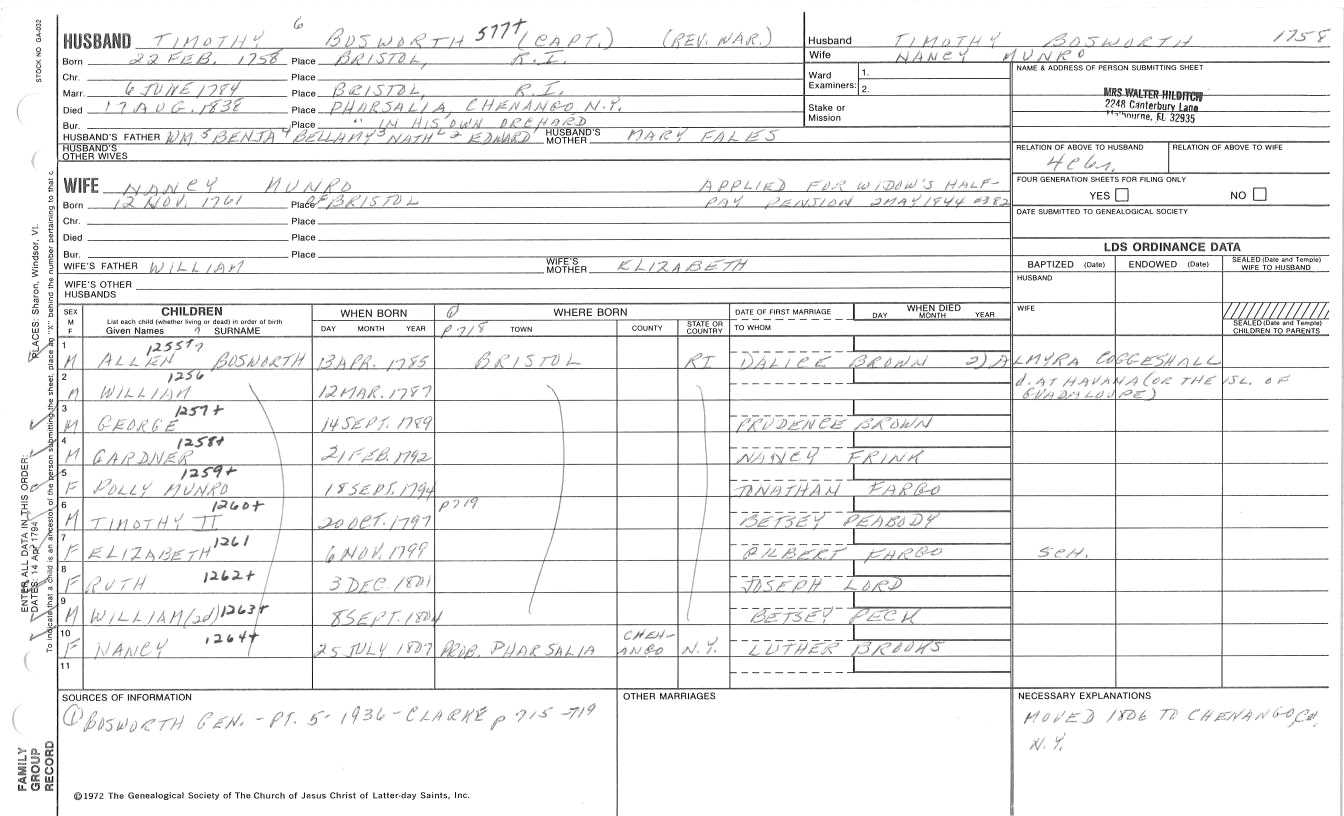 STOCK NO GA-032
HUSBAND TIMOTHY 6 BOSWORTH 577+ (CAPT.) (REV. NAR.)
Born 22 FEB. 1758 Place BRISTOL, R.I.
Chr. Place
Marr. 6 JUNE 1784 Place BRISTOL, R.I.
Died 17 AUG. 1838 Place PHARSALIA, CHENANGO N.Y.
Bur. Place " IN HIS OWN ORCHARD
HUSBAND'S FATHER WM 5 BENJA 4 BELLAMY 3 NATH'L 2 EDWARD' HUSBAND'S MOTHER MARY FALES
HUSBAND'S OTHER WIVES
Husband TIMOTHY BOSWORTH 1758
Wife NANCY MUNRO
Ward
Examiners: 1.
2.
Stake or
Mission
NAME & ADDRESS OF PERSON SUBMITTING SHEET
MRS WALTER HILDITCH
2248 Canterbury Lane
Melbourne, FL 32935
RELATION OF ABOVE TO HUSBAND RELATION OF ABOVE TO WIFE
FOUR GENERATION SHEETS FOR FILING ONLY
YES NO
DATE SUBMITTED TO GENEALOGICAL SOCIETY
WIFE NANCY MUNRO APPLIED FOR WIDOW'S HALF-
Born 12 NOV. 1761 Place OF BRISTOL PAY PENSION 2 MAY 1844 #382
Chr. Place
Died Place
Bur. Place
WIFE'S FATHER WILLIAM WIFE'S MOTHER ELIZABETH
WIFE'S OTHER HUSBANDS
LDS ORDINANCE DATA
BAPTIZED (Date) ENDOWED (Date) SEALED (Date and Temple) WIFE TO HUSBAND
HUSBAND
WIFE
SEALED (Date and Temple) CHILDREN TO PARENTS
SEX M F CHILDREN WHEN BORN WHERE BORN DATE OF FIRST MARRIAGE WHEN DIED
List each child (whether living or dead) in order of birth
Given Names 7 SURNAME DAY MONTH YEAR p 718 TOWN COUNTY STATE OR COUNTRY TO WHOM DAY MONTH YEAR
1 M ALLEN 1255+7 BOSWORTH 13 APR. 1785 BRISTOL RI DALICE BROWN 2) ALMYRA COGGESHALL
2 M WILLIAM 1256 12 MAR. 1787 d. AT HAVANA (OR THE ISL. OF
GUADALOUPE)
3 M GEORGE 1257+ 14 SEPT. 1789 PRUDENCE BROWN
4 M GARDNER 1258+ 21 FEB. 1792 NANCY FRINK
5 F POLLY MUNRO 1259+ 18 SEPT. 1794 JONATHAN FARGO
6 M TIMOTHY II 1260+ 20 OCT. 1797 p 719 BETSEY PEABODY
7 F ELIZABETH 1261 6 NOV. 1799 GILBERT FARGO SCH.
8 F RUTH 1262+ 3 DEC. 1801 JOSEPH LORD
9 M WILLIAM (2d) 1263+ 8 SEPT. 1804 BETSEY PECK
10 F NANCY 1264+ 25 JULY 1807 PROB. PHARSALIA CHEN-
ANGO N.Y. LUTHER BROOKS
11
SOURCES OF INFORMATION
① BOSWORTH GEN. - PT. 5 - 1936 - CLARKE p 715-719
OTHER MARRIAGES
NECESSARY EXPLANATIONS
MOVED 1806 TO CHENANGO, CO,
N.Y.
©1972 The Genealogical Society of The Church of Jesus Christ of Latter-day Saints, Inc.
FAMILY
GROUP
RECORD
ENTER ALL DATA IN THIS ORDER:
DATES: 14 Apr 1794
PLACES: Sharon, Windsor, Vt.
To indicate that a child is an ancestor of the person submitting the sheet, place an "X" behind the number pertaining to that c